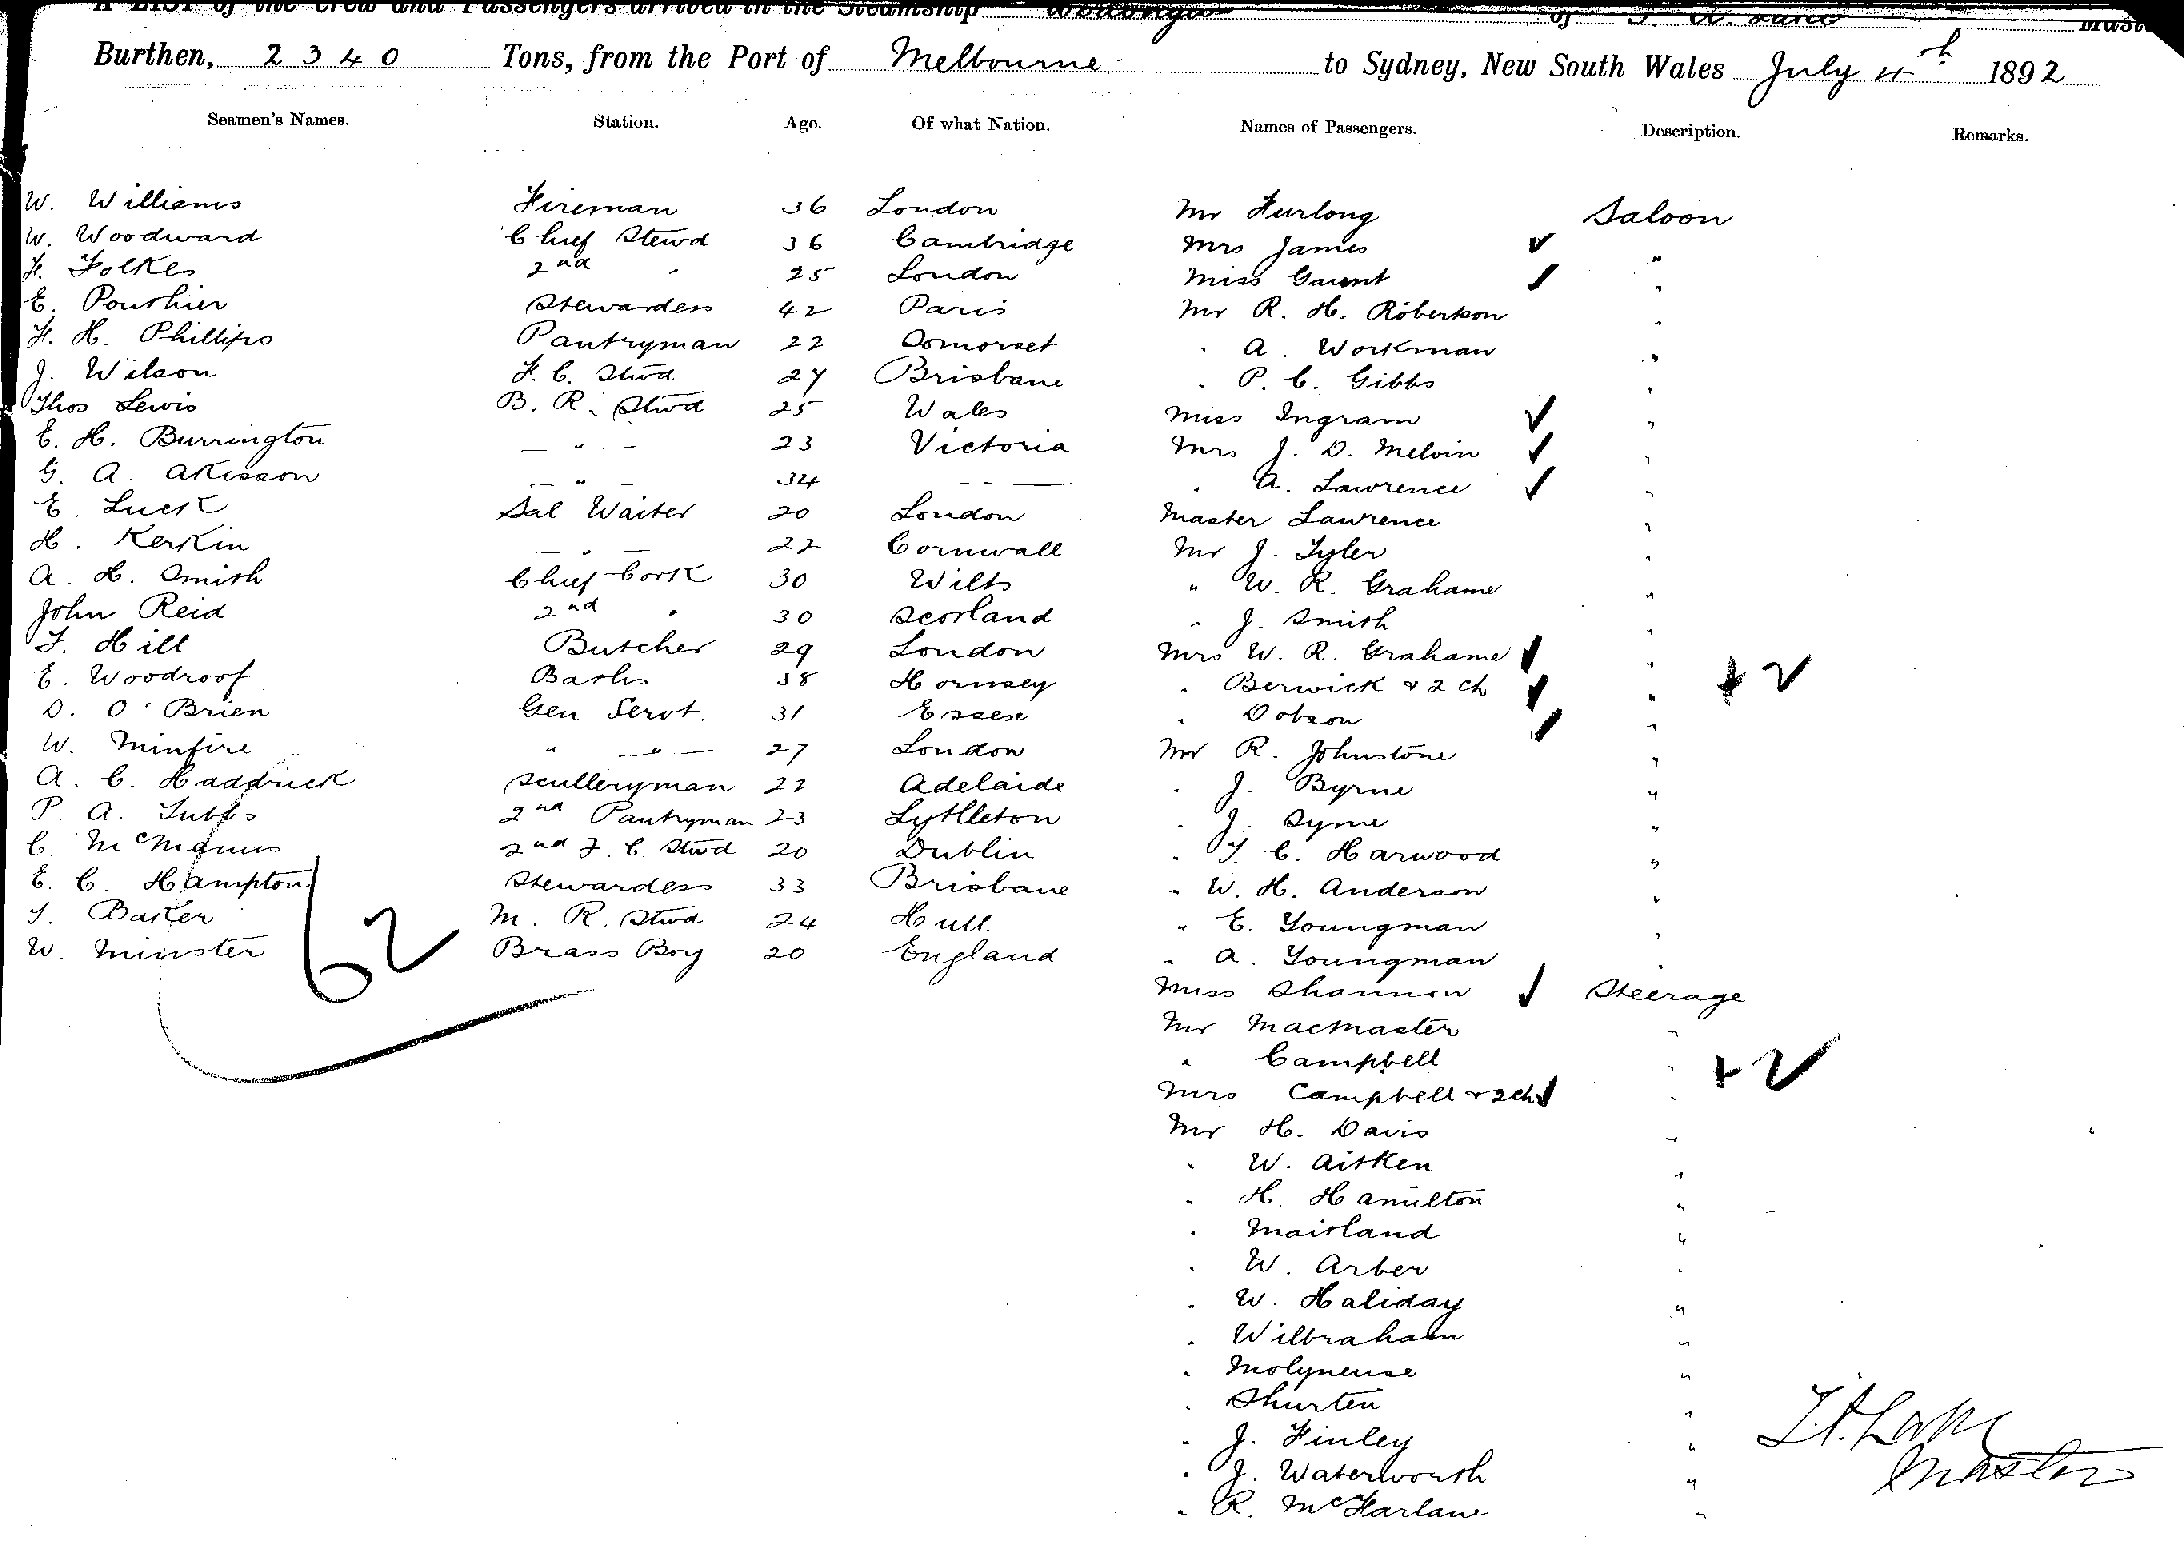 A LIST of the Crew and Passengers arrived in the Steamship Wodonga of
Burthen, 2340 Tons, from the Port of Melbourne to Sydney, New South Wales July 4th 1892
Seamen's Names. Station. Age. Of what Nation. Names of Passengers. Description. Remarks.
W. Williams Fireman 36 London Mr Furlong Saloon
W. Woodward Chief Stewd 36 Cambridge Mrs James ✓ "
F. Folkes 2nd " 25 London Miss Gaunt ✓ "
E. Pouthier Stewardess 42 Paris Mr R. H. Robertson "
F. H. Phillips Pantryman 22 Somerset " A. Workman "
J. Wilson F. C. Stwd. 27 Brisbane " P. C. Gibbs "
Thos Lewis B. R. Stwd 25 Wales Miss Ingram ✓ "
E. H. Burrington — " — 23 Victoria Mrs J. D. Melvin ✓ "
G. A. Akisson — " — 34 — — " A. Lawrence ✓ "
E. Luck Sal Waiter 20 London Master Lawrence "
H. Kerkin — " — 22 Cornwall Mr J. Tyler "
A. H. Smith Chief Cook 30 Wilts " W. R. Grahame "
John Reid 2nd " 30 Scotland " J. Smith "
T. Hill Butcher 29 London Mrs W. R. Grahame ✓ "
E. Woodroof Baths 38 Hornsey " Berwick & 2 ch ✓ " + 2
D. O'Brien Gen Servt. 31 Essex " Dobson ✓ "
W. Minfire " — " — 27 London Mr R. Johnstone "
A. C. Haddrick Sculleryman 22 Adelaide " J. Byrne "
P. A. Tubbs 2nd Pantryman 23 Lyttleton " J. Syme "
C. McManus 2nd F. C. Stwd 20 Dublin " T. C. Harwood "
E. C. Hampton Stewardess 33 Brisbane " W. H. Anderson "
T. Baker M. R. Stwd 24 Hull " E. Youngman "
W. Minster Brass Boy 20 England " A. Youngman "
62
Miss Shannon ✓ Steerage
Mr MacMaster "
" Campbell " + 2
Mrs Campbell & 2 ch ✓ "
Mr H. Davis "
" W. Aitken "
" H. Hamilton "
" Maitland "
" W. Arber "
" W. Haliday "
" Wilbraham "
" Molyneuse "
" Shurten "
" J. Finley "
" J. Waterworth "
" R. McFarlane "
Master